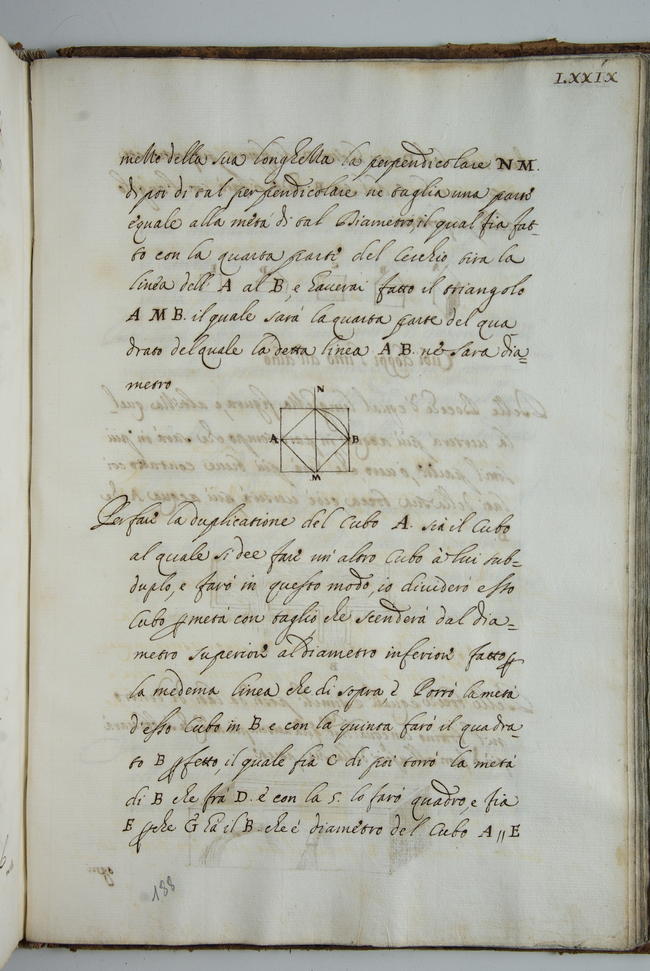 LXXIX
metto della sua longhetta la perpendicolare N M.
di poi di tal perpendicolare ne taglia una parte
equale alla metá di tal Diametro, il qual fia fat=
to con la quarta parte del Cerchio tira la
linea dell' A al B, e haverai fatto il triangolo
A M B. il quale sará la quarta parte del qua
drato del quale la detta linea A B. ne sara dia=
metro
N
A B
M
Per fare la duplicatione del Cubo A. sia il Cubo
al quale si dee fare un' altro Cubo à lui sub=
duplo, e faró in questo modo, io divideró esso
Cubo ꝑ metá con taglio che scenderá dal dia=
metro superiore al diametro inferiore fatto ꝑ
la medema linea che di sopra è Torró la metá
d'esso Cubo in B. e con la quinta faró il quadra=
to B ꝑfetto, il quale fia C di poi torró la metá
di B che frá D. è con la 5. lo faró quadro, e fia
E ꝑche il B. che é diametro del Cubo A // E
138